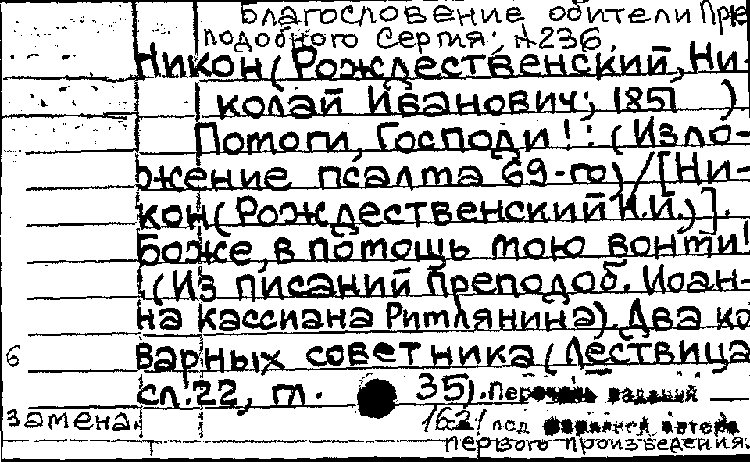 Благословение обители Пре
подобного Сергия: №236.
Никон (Рождественский, Ни-
колай Иванович; 1851 )
Помоги, Господи! : (Изло-
жение псалма 69-го) / [Ни-
кон (Рождественский Н.И.)].
Боже, в помощь мою вонми!
. (Из писаний преподоб. Иоан-
на Кассиана Римлянина). Два ко
6 варных советника (Лествица
сл. 22, гл. 35).
Замена. 1621 под
первого произведения.